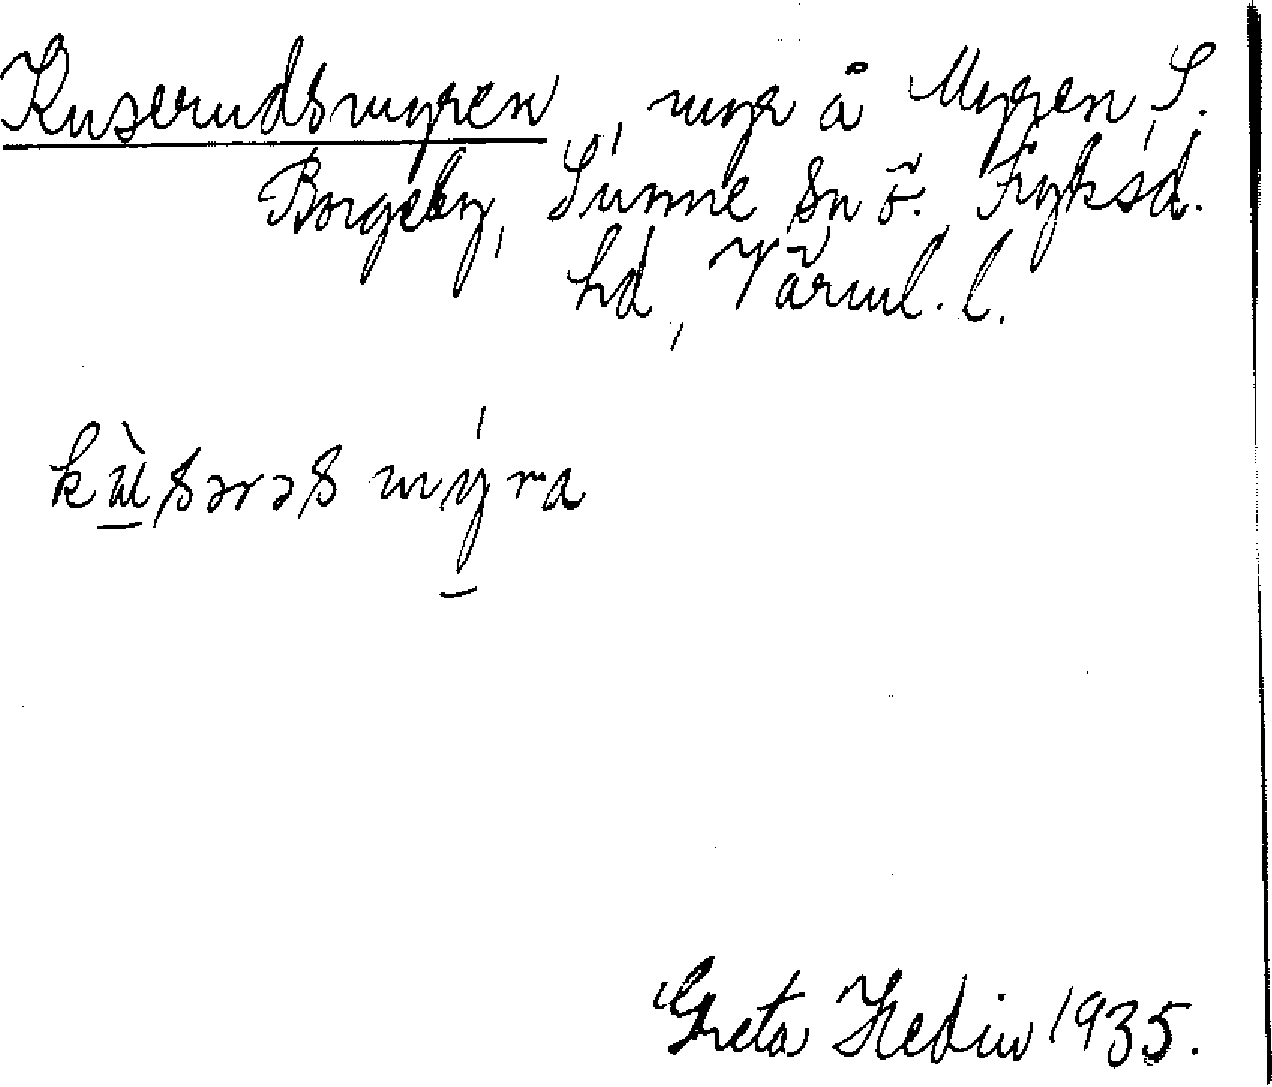 Kuserudsmyren, myr å Myren, S.
Borgeby, Sunne sn ö. Fryksd.
hd, Värml. l.
kùsərəs mýra
Greta Hedin 1935.